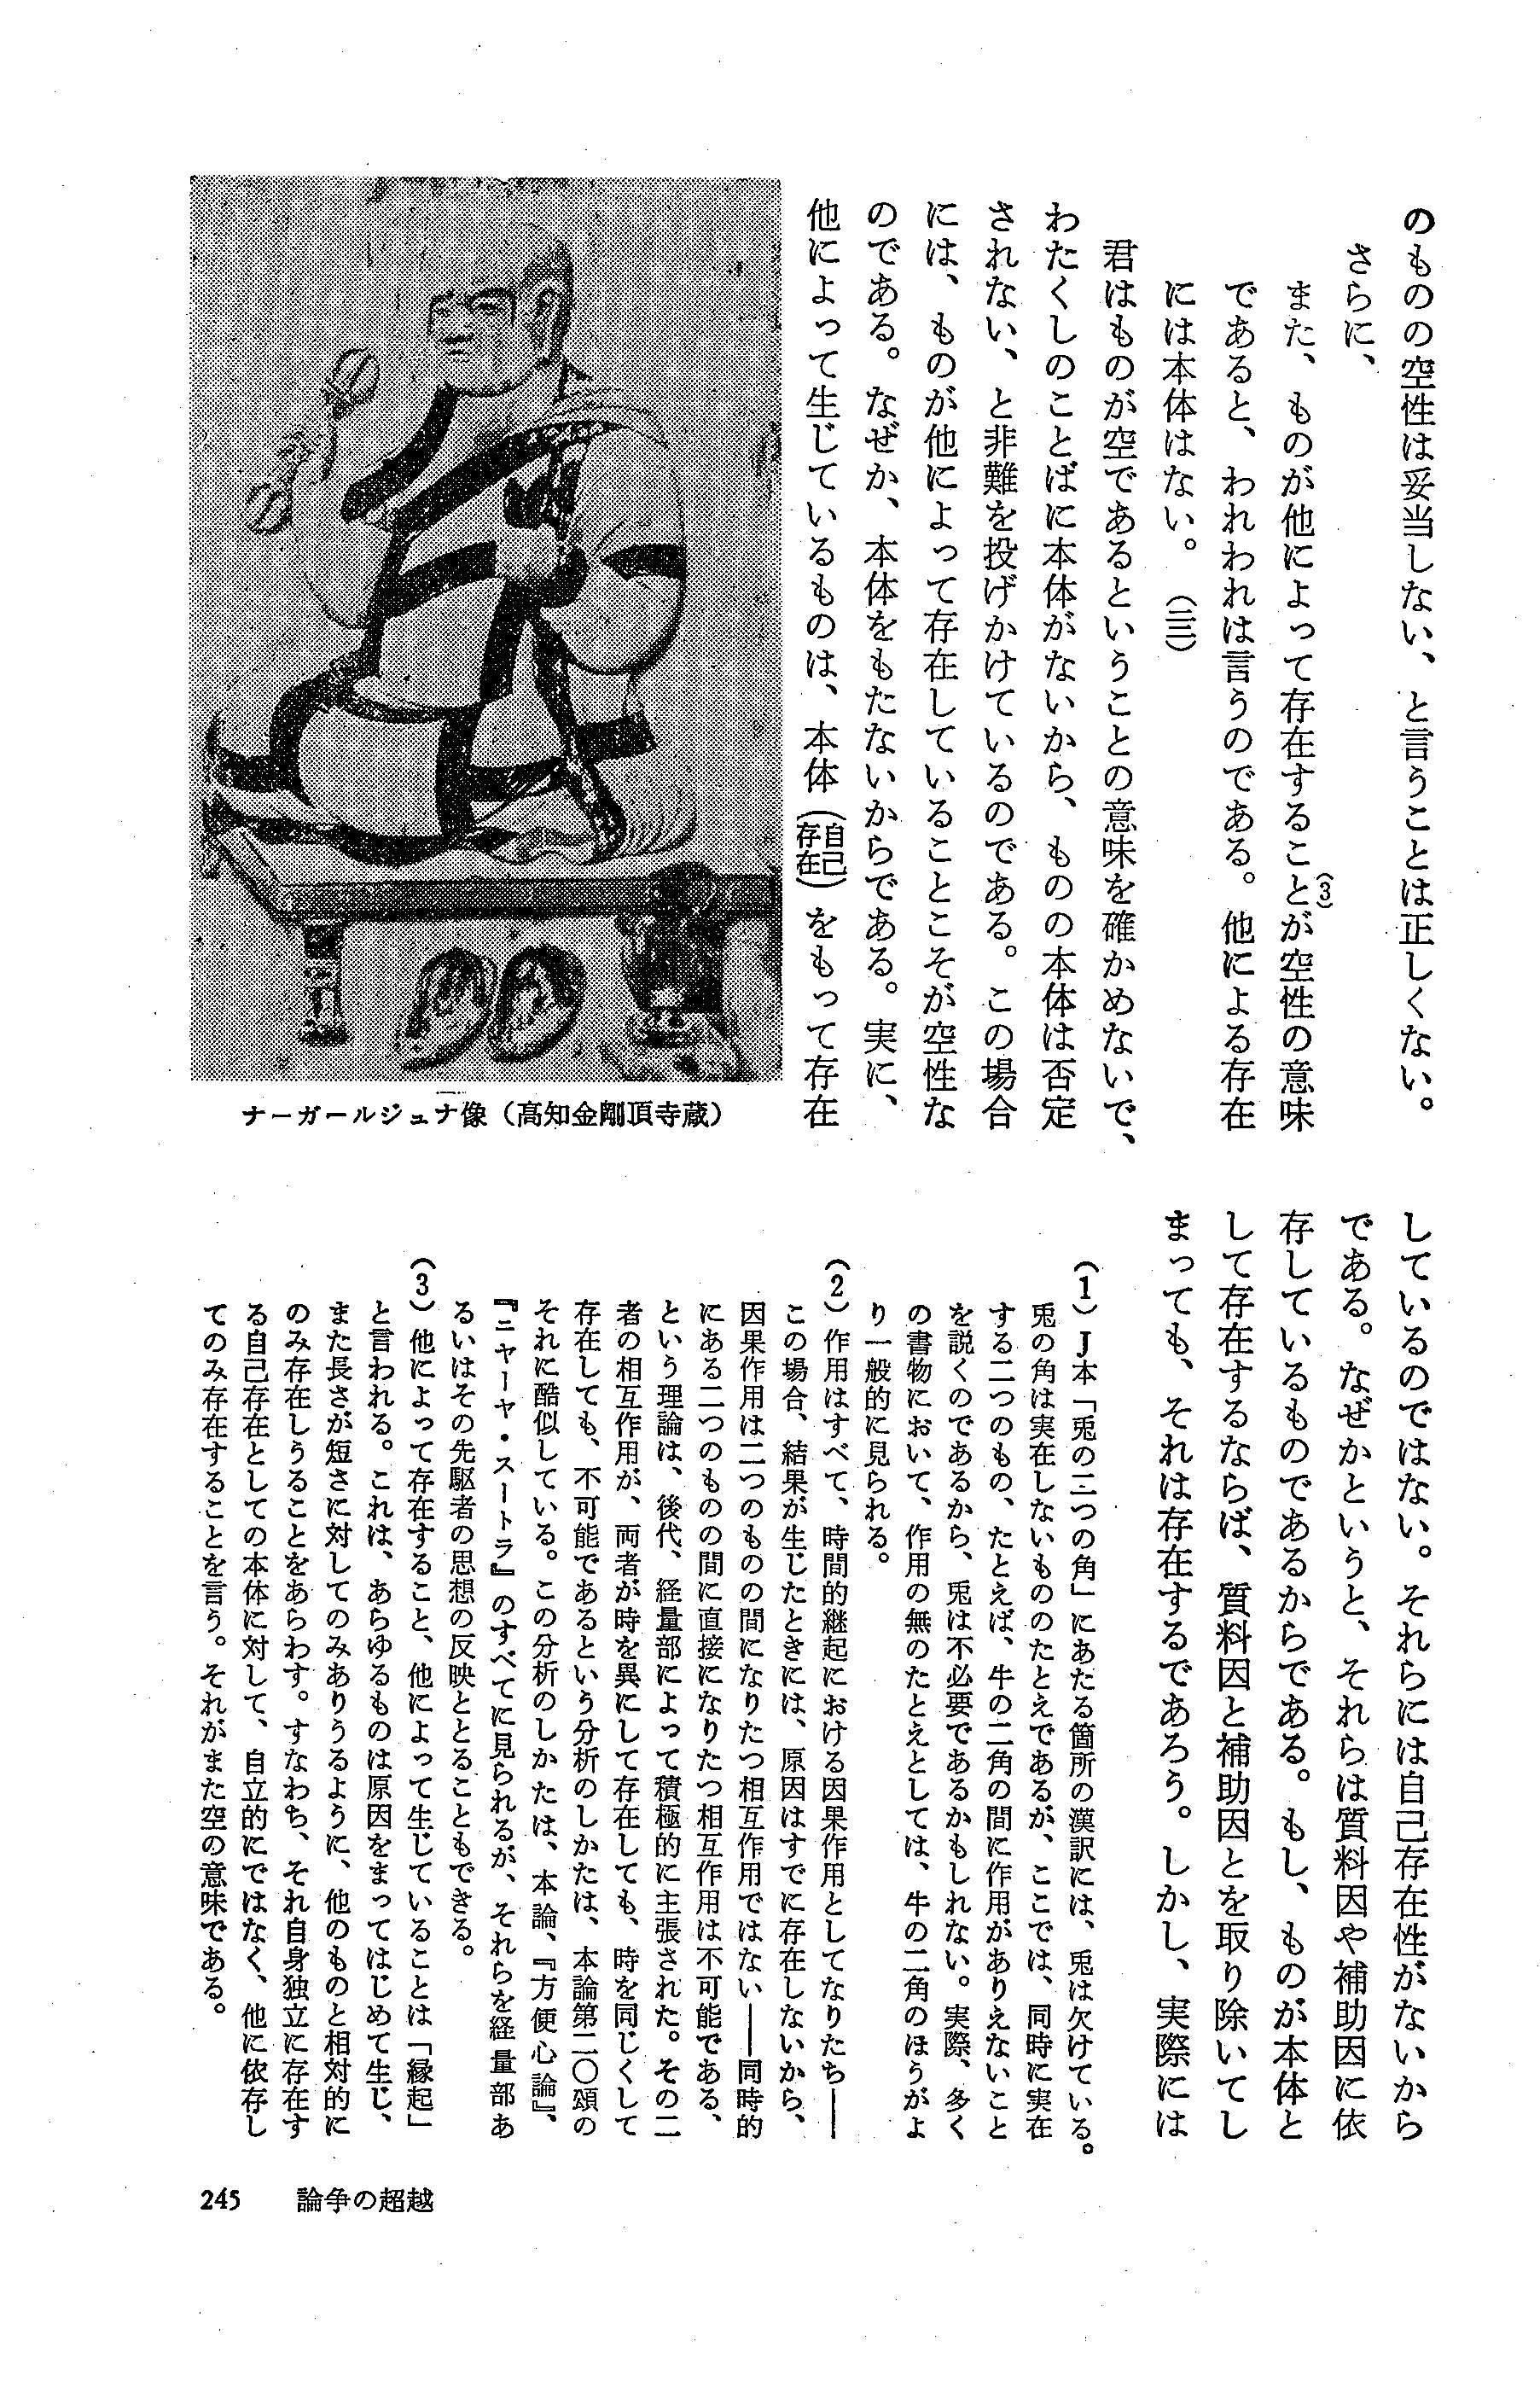 のものの空性は妥当しない、と言うことは正しくない。
さらに、
また、ものが他によって存在すること(3)が空性の意味
であると、われわれは言うのである。他による存在
には本体はない。(二二)
君はものが空であるということの意味を確かめないで、
わたくしのことばに本体がないから、ものの本体は否定
されない、と非難を投げかけているのである。この場合
には、ものが他によって存在していることこそが空性な
のである。なぜか、本体をもたないからである。実に、
他によって生じているものは、本体(自己存在)をもって存在
ナーガールジュナ像(高知金剛頂寺蔵)
しているのではない。それらには自己存在性がないから
である。なぜかというと、それらは質料因や補助因に依
存しているものであるからである。もし、ものが本体と
して存在するならば、質料因と補助因とを取り除いてし
まっても、それは存在するであろう。しかし、実際には
(1) J本「兎の二つの角」にあたる箇所の漢訳には、兎は欠けている。
兎の角は実在しないもののたとえであるが、ここでは、同時に実在
する二つのもの、たとえば、牛の二角の間に作用がありえないこと
を説くのであるから、兎は不必要であるかもしれない。実際、多く
の書物において、作用の無のたとえとしては、牛の二角のほうがよ
り一般的に見られる。
(2) 作用はすべて、時間的継起における因果作用としてなりたち――
この場合、結果が生じたときには、原因はすでに存在しないから、
因果作用は二つのものの間になりたつ相互作用ではない――同時的
にある二つのものの間に直接になりたつ相互作用は不可能である、
という理論は、後代、経量部によって積極的に主張された。その二
者の相互作用が、両者が時を異にして存在しても、時を同じくして
存在しても、不可能であるという分析のしかたは、本論第二〇頌の
それに酷似している。この分析のしかたは、本論、『方便心論』、
『ニヤーヤ・スートラ』のすべてに見られるが、それらを経量部あ
るいはその先駆者の思想の反映ととることもできる。
(3) 他によって存在すること、他によって生じていることは「縁起」
と言われる。これは、あらゆるものは原因をまってはじめて生じ、
また長さが短さに対してのみありうるように、他のものと相対的に
のみ存在しうることをあらわす。すなわち、それ自身独立に存在す
る自己存在としての本体に対して、自立的にではなく、他に依存し
てのみ存在することを言う。それがまた空の意味である。
245 論争の超越